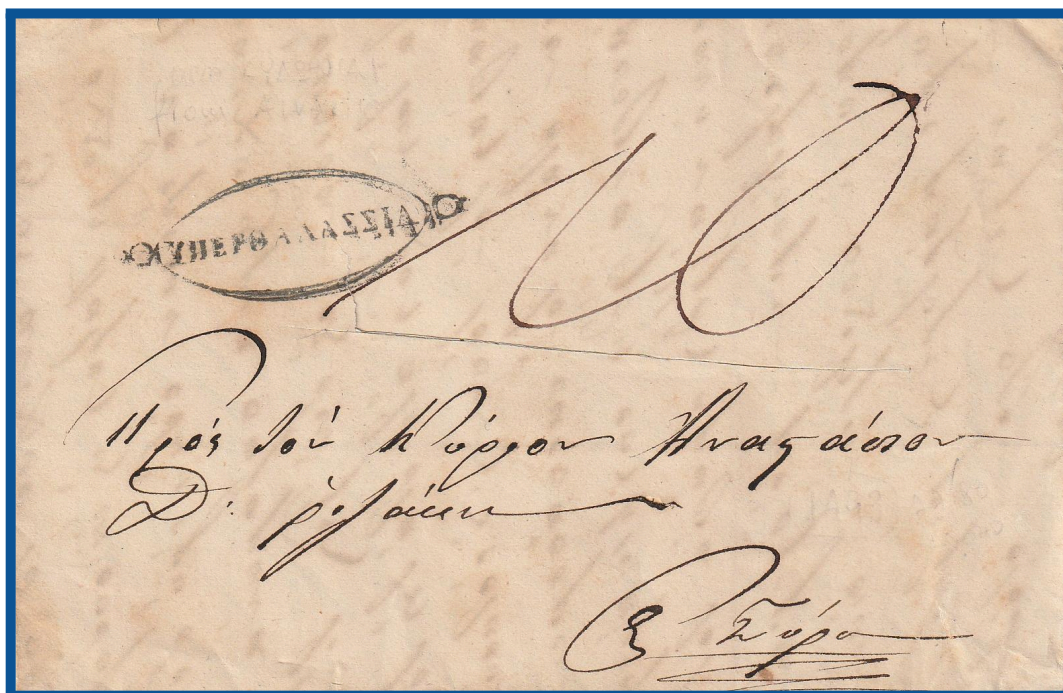 ΥΠΕΡΘΑΛΑΣΣΙΑ
10
Πρός τον Κύριον Αναστάσιον
Δ.
Σύρα